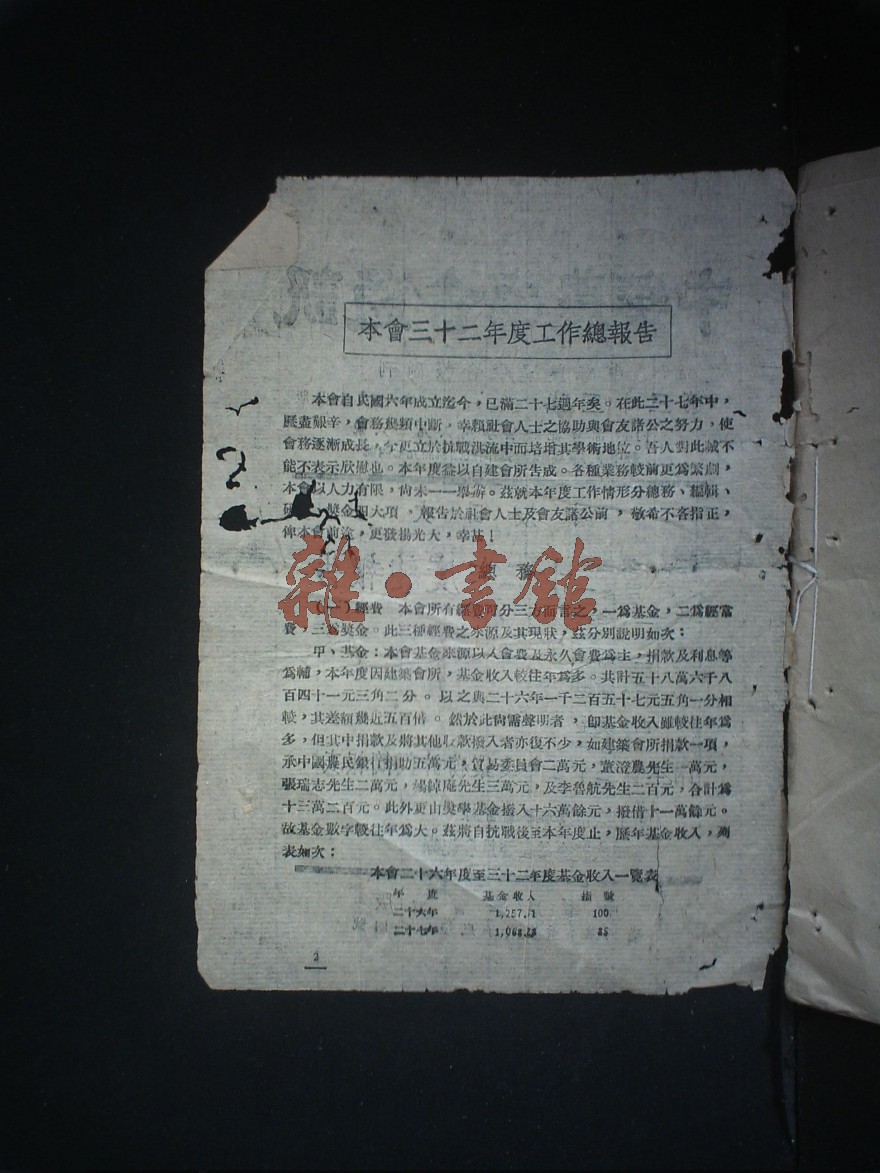 本會三十二年度工作總報告
本會自民國六年成立迄今，已滿二十七週年矣。在此二十七年中，
歷盡艱辛，會務幾頻中斷，幸賴社會人士之協助與會友諸公之努力，使
會務逐漸成長，今更立於抗戰洪流中而培增其學術地位。吾人對此誠不
能不表示欣慰也。本年度益以自建會所告成。各種業務較前更爲繁劇，
本會以人力有限，尚未一一舉辦。茲就本年度工作情形分總務、編輯、
獎金四大項，報告於社會人士及會友諸公前，敬希不吝指正，
俾本會前途，更發揚光大，幸甚！
總務
雜·書館
（一）經費　本會所有經費可分三方面言之，一爲基金，二爲經常
費，三爲獎金。此三種經費之來源及其現狀，茲分別說明如次：
甲、基金：本會基金來源以入會費及永久會費爲主，捐款及利息等
爲輔，本年度因建築會所，基金收入較往年爲多。共計五十八萬六千八
百四十一元三角二分。以之與二十六年一千二百五十七元五角一分相
較，其差額幾近五百倍。然於此尚需聲明者，卽基金收入雖較往年爲
多，但其中捐款及將其他收款撥入者亦復不少，如建築會所捐款一項，
承中國農民銀行捐助五萬元，貿易委員會二萬元，董澄農先生一萬元，
張瑞志先生二萬元，楊錞庵先生三萬元，及李魯航先生二百元，合計爲
十三萬二百元。此外更由獎學基金撥入十六萬餘元，撥借十一萬餘元。
故基金數字較往年爲大。茲將自抗戰後至本年度止，歷年基金收入，列
表如次：
本會二十六年度至三十二年度基金收入一覽表
年　度　基金收入　指　號
二十六年　100
二十七年　85
2